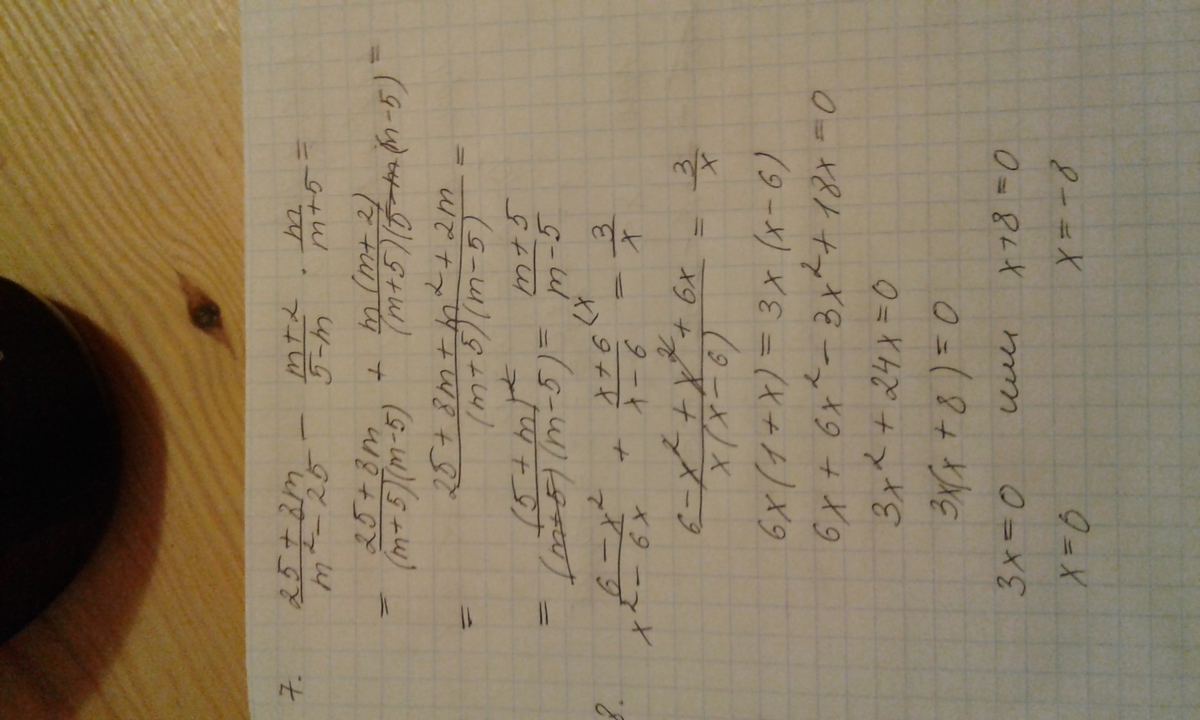 7. (25 + 8m)/(m² − 25) − (m + 2)/(5 − m) · m/(m + 5) =
= (25 + 8m)/((m + 5)(m − 5)) + m(m + 2)/((m + 5)(m − 5)) =
= (25 + 8m + m² + 2m)/((m + 5)(m − 5)) =
= (5 + m)²/((m + 5)(m − 5)) = (m + 5)/(m − 5)
8. (6 − x²)/(x² − 6x) + (x + 6)/(x − 6) (x = 3/x
(6 − x² + x² + 6x)/(x(x − 6)) = 3/x
6x(1 + x) = 3x(x − 6)
6x + 6x² − 3x² + 18x = 0
3x² + 24x = 0
3x(x + 8) = 0
3x = 0 или x + 8 = 0
x = 0 x = −8